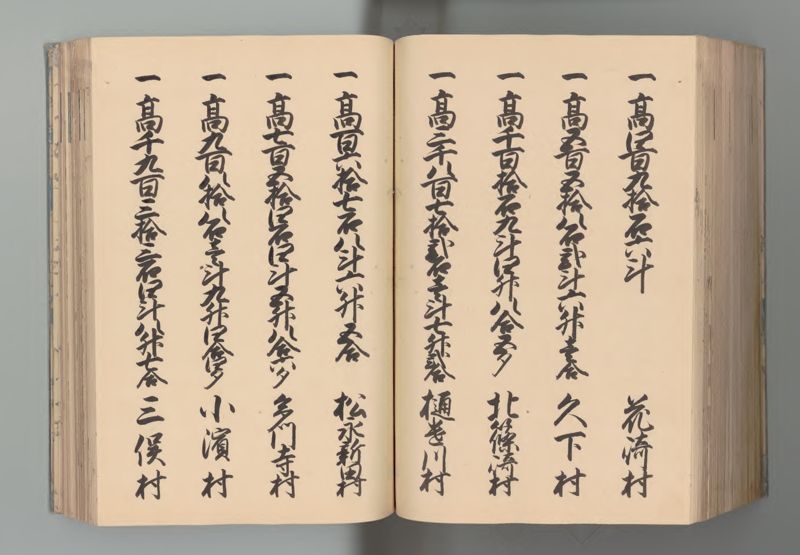 一高四百九拾石六斗 花崎村
一高五百五拾八石弐斗六升壱合 久下村
一高千百拾石九斗四升八合五夕 北篠崎村
一高三千八百七拾弐石壱斗七升弐合 樋遣川村
一高百六拾七石八斗六升五合 松永新田村
一高七百五拾四石四斗五升八合六夕 多門寺村
一高九百八拾八石壱斗九升四合四夕 小濱村
一高千九百三拾三石四斗八升七合 三俣村